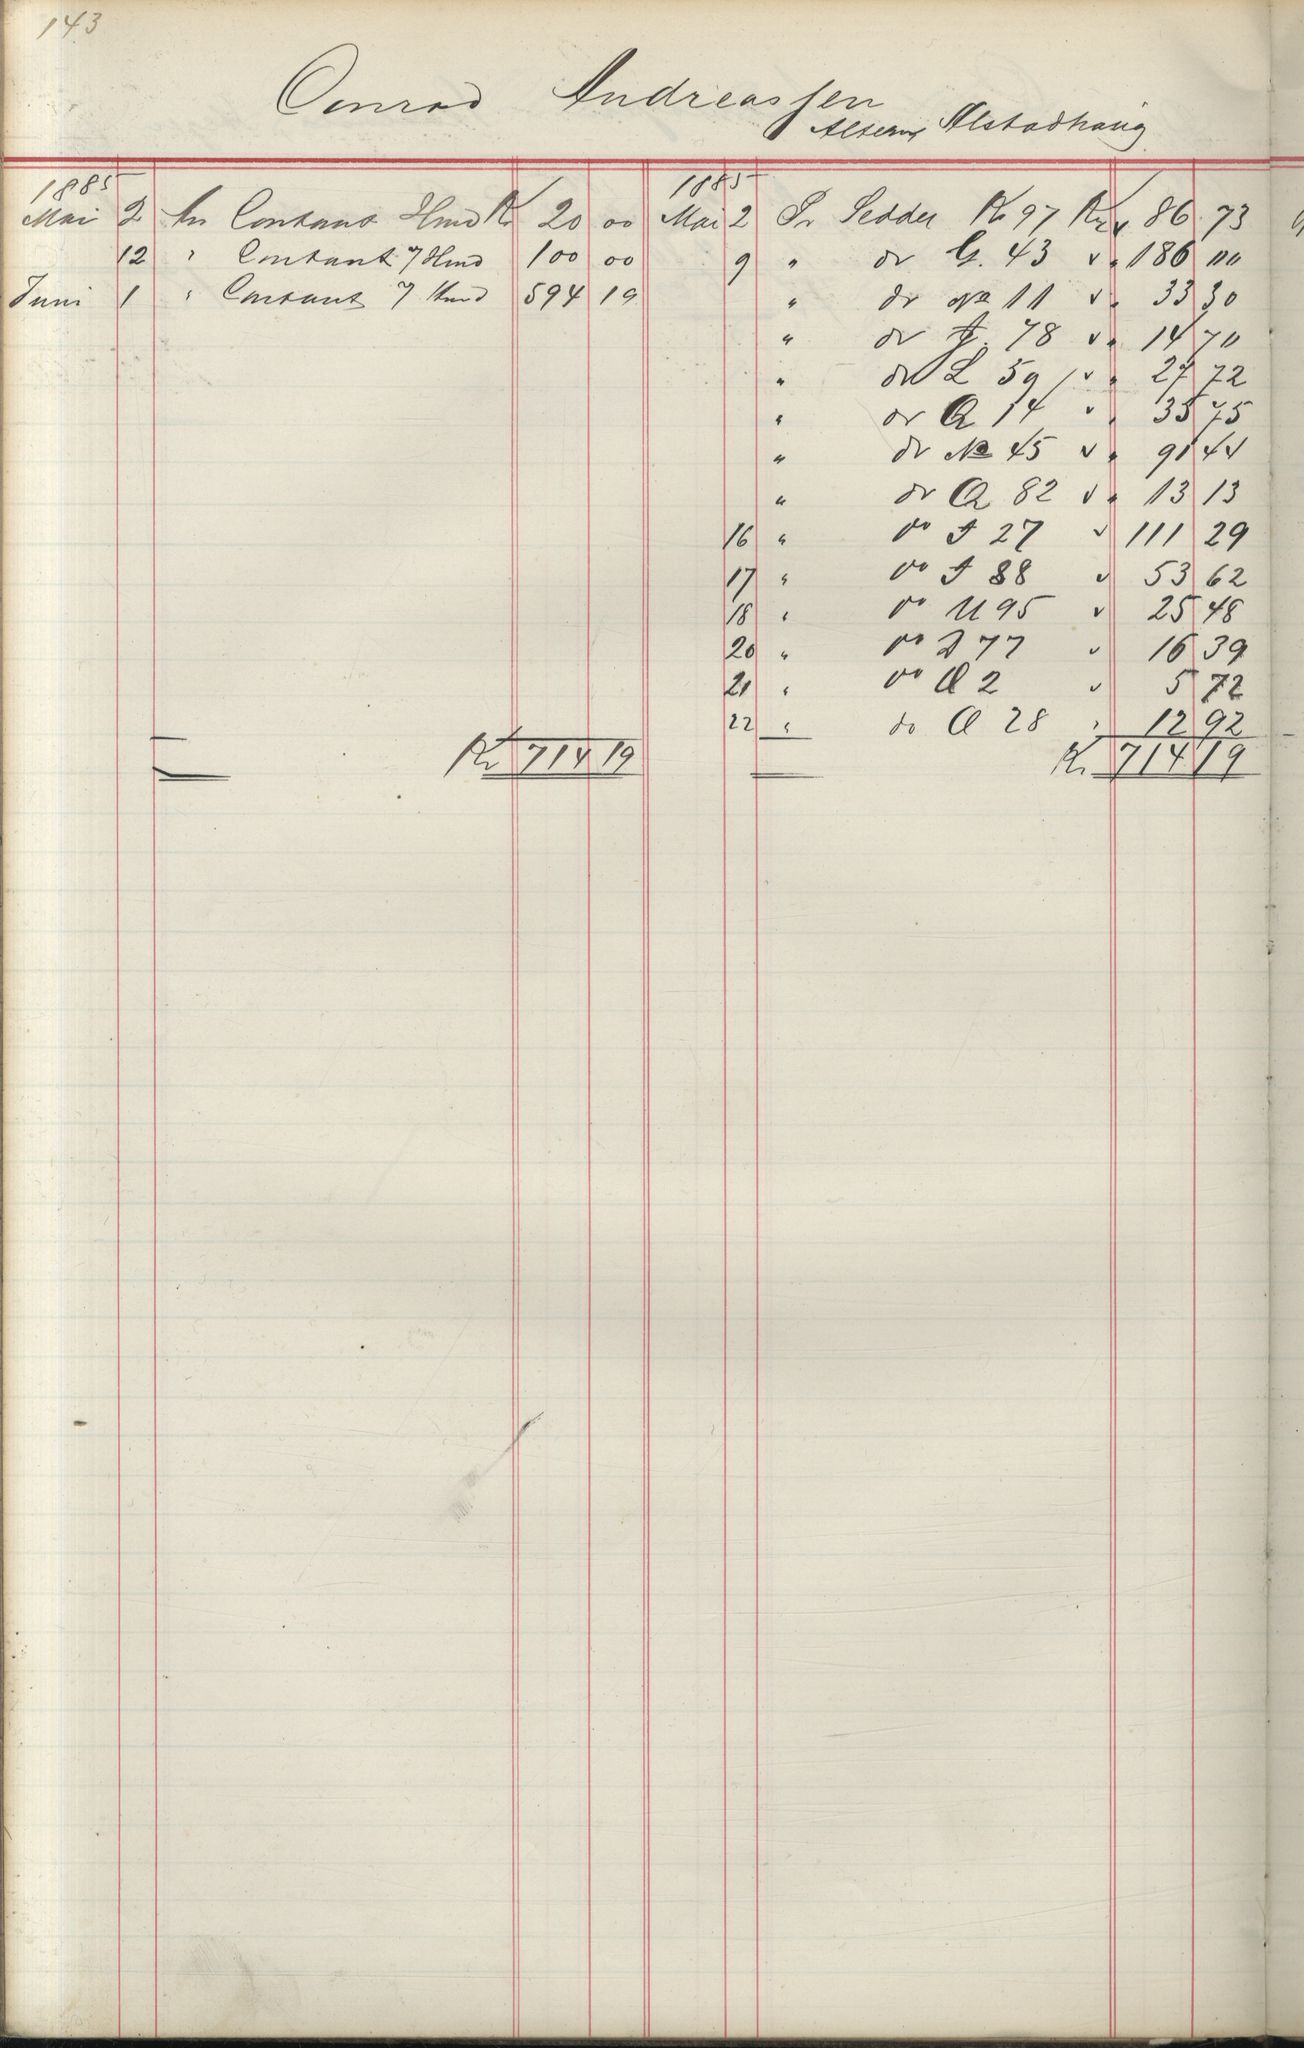 143
Conrad Andreassen
Alstadhaug
1885
Mai 2 An Contant Hmd Kr 20 00
12 " Contant 7 Hmd 100 00
Juni 1 " Contant 7 Hmd 594 19
Kr 714 19
1885
Mai 2 Pr Seddel Kr 97 Kr 86 73
9 " do G. 43 " 186 00
" do No 11 " 33 30
" do J. 78 " 14 70
" do L 59 " 27 72
" do Q 14 " 35 75
" do No 45 " 91 44
" do Q 82 " 13 13
16 " do 27 111 29
17 " do 88 53 62
18 " do U 95 25 48
20 " do 77 16 39
21 " do O 2 5 72
22 " do O 28 " 12 92
Kr 714 19